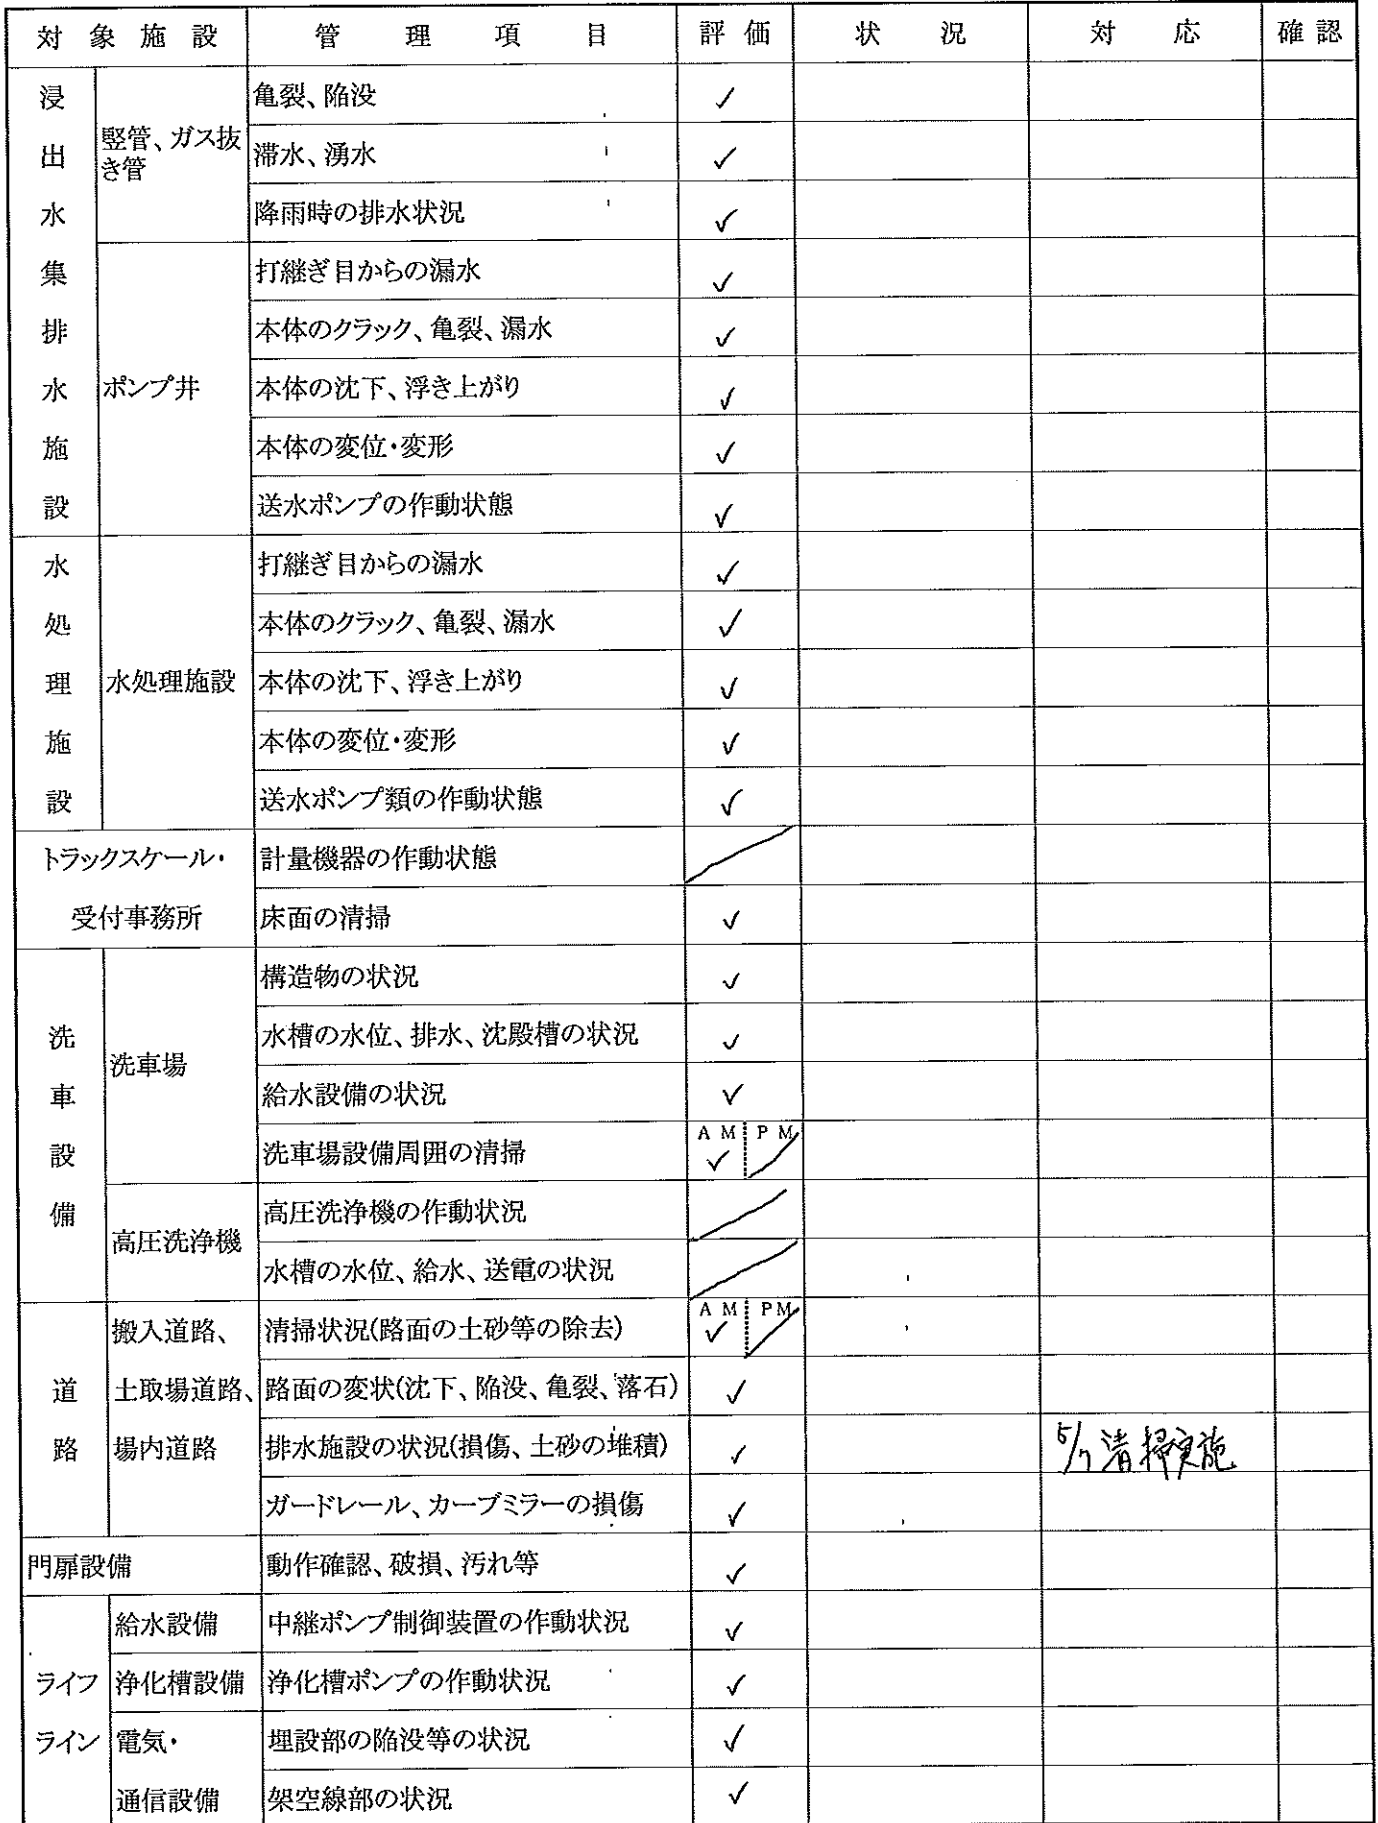 対象施設 管理項目 評価 状況 対応 確認
浸出水集排水施設
竪管、ガス抜き管
亀裂、陥没 ✓
滞水、湧水 ✓
降雨時の排水状況 ✓
ポンプ井
打継ぎ目からの漏水 ✓
本体のクラック、亀裂、漏水 ✓
本体の沈下、浮き上がり ✓
本体の変位・変形 ✓
送水ポンプの作動状態 ✓
水処理施設
水処理施設
打継ぎ目からの漏水 ✓
本体のクラック、亀裂、漏水 ✓
本体の沈下、浮き上がり ✓
本体の変位・変形 ✓
送水ポンプ類の作動状態 ✓
トラックスケール・
受付事務所
計量機器の作動状態 ／
床面の清掃 ✓
洗車設備
洗車場
構造物の状況 ✓
水槽の水位、排水、沈殿槽の状況 ✓
給水設備の状況 ✓
洗車場設備周囲の清掃 AM ✓ PM ／
高圧洗浄機
高圧洗浄機の作動状況 ／
水槽の水位、給水、送電の状況 ／
道路
搬入道路、
土取場道路、
場内道路
清掃状況(路面の土砂等の除去) AM ✓ PM ／
路面の変状(沈下、陥没、亀裂、落石) ✓
排水施設の状況(損傷、土砂の堆積) ✓ 5/7 清掃実施
ガードレール、カーブミラーの損傷 ✓
門扉設備 動作確認、破損、汚れ等 ✓
ライフ
ライン
給水設備 中継ポンプ制御装置の作動状況 ✓
浄化槽設備 浄化槽ポンプの作動状況 ✓
電気・
通信設備
埋設部の陥没等の状況 ✓
架空線部の状況 ✓